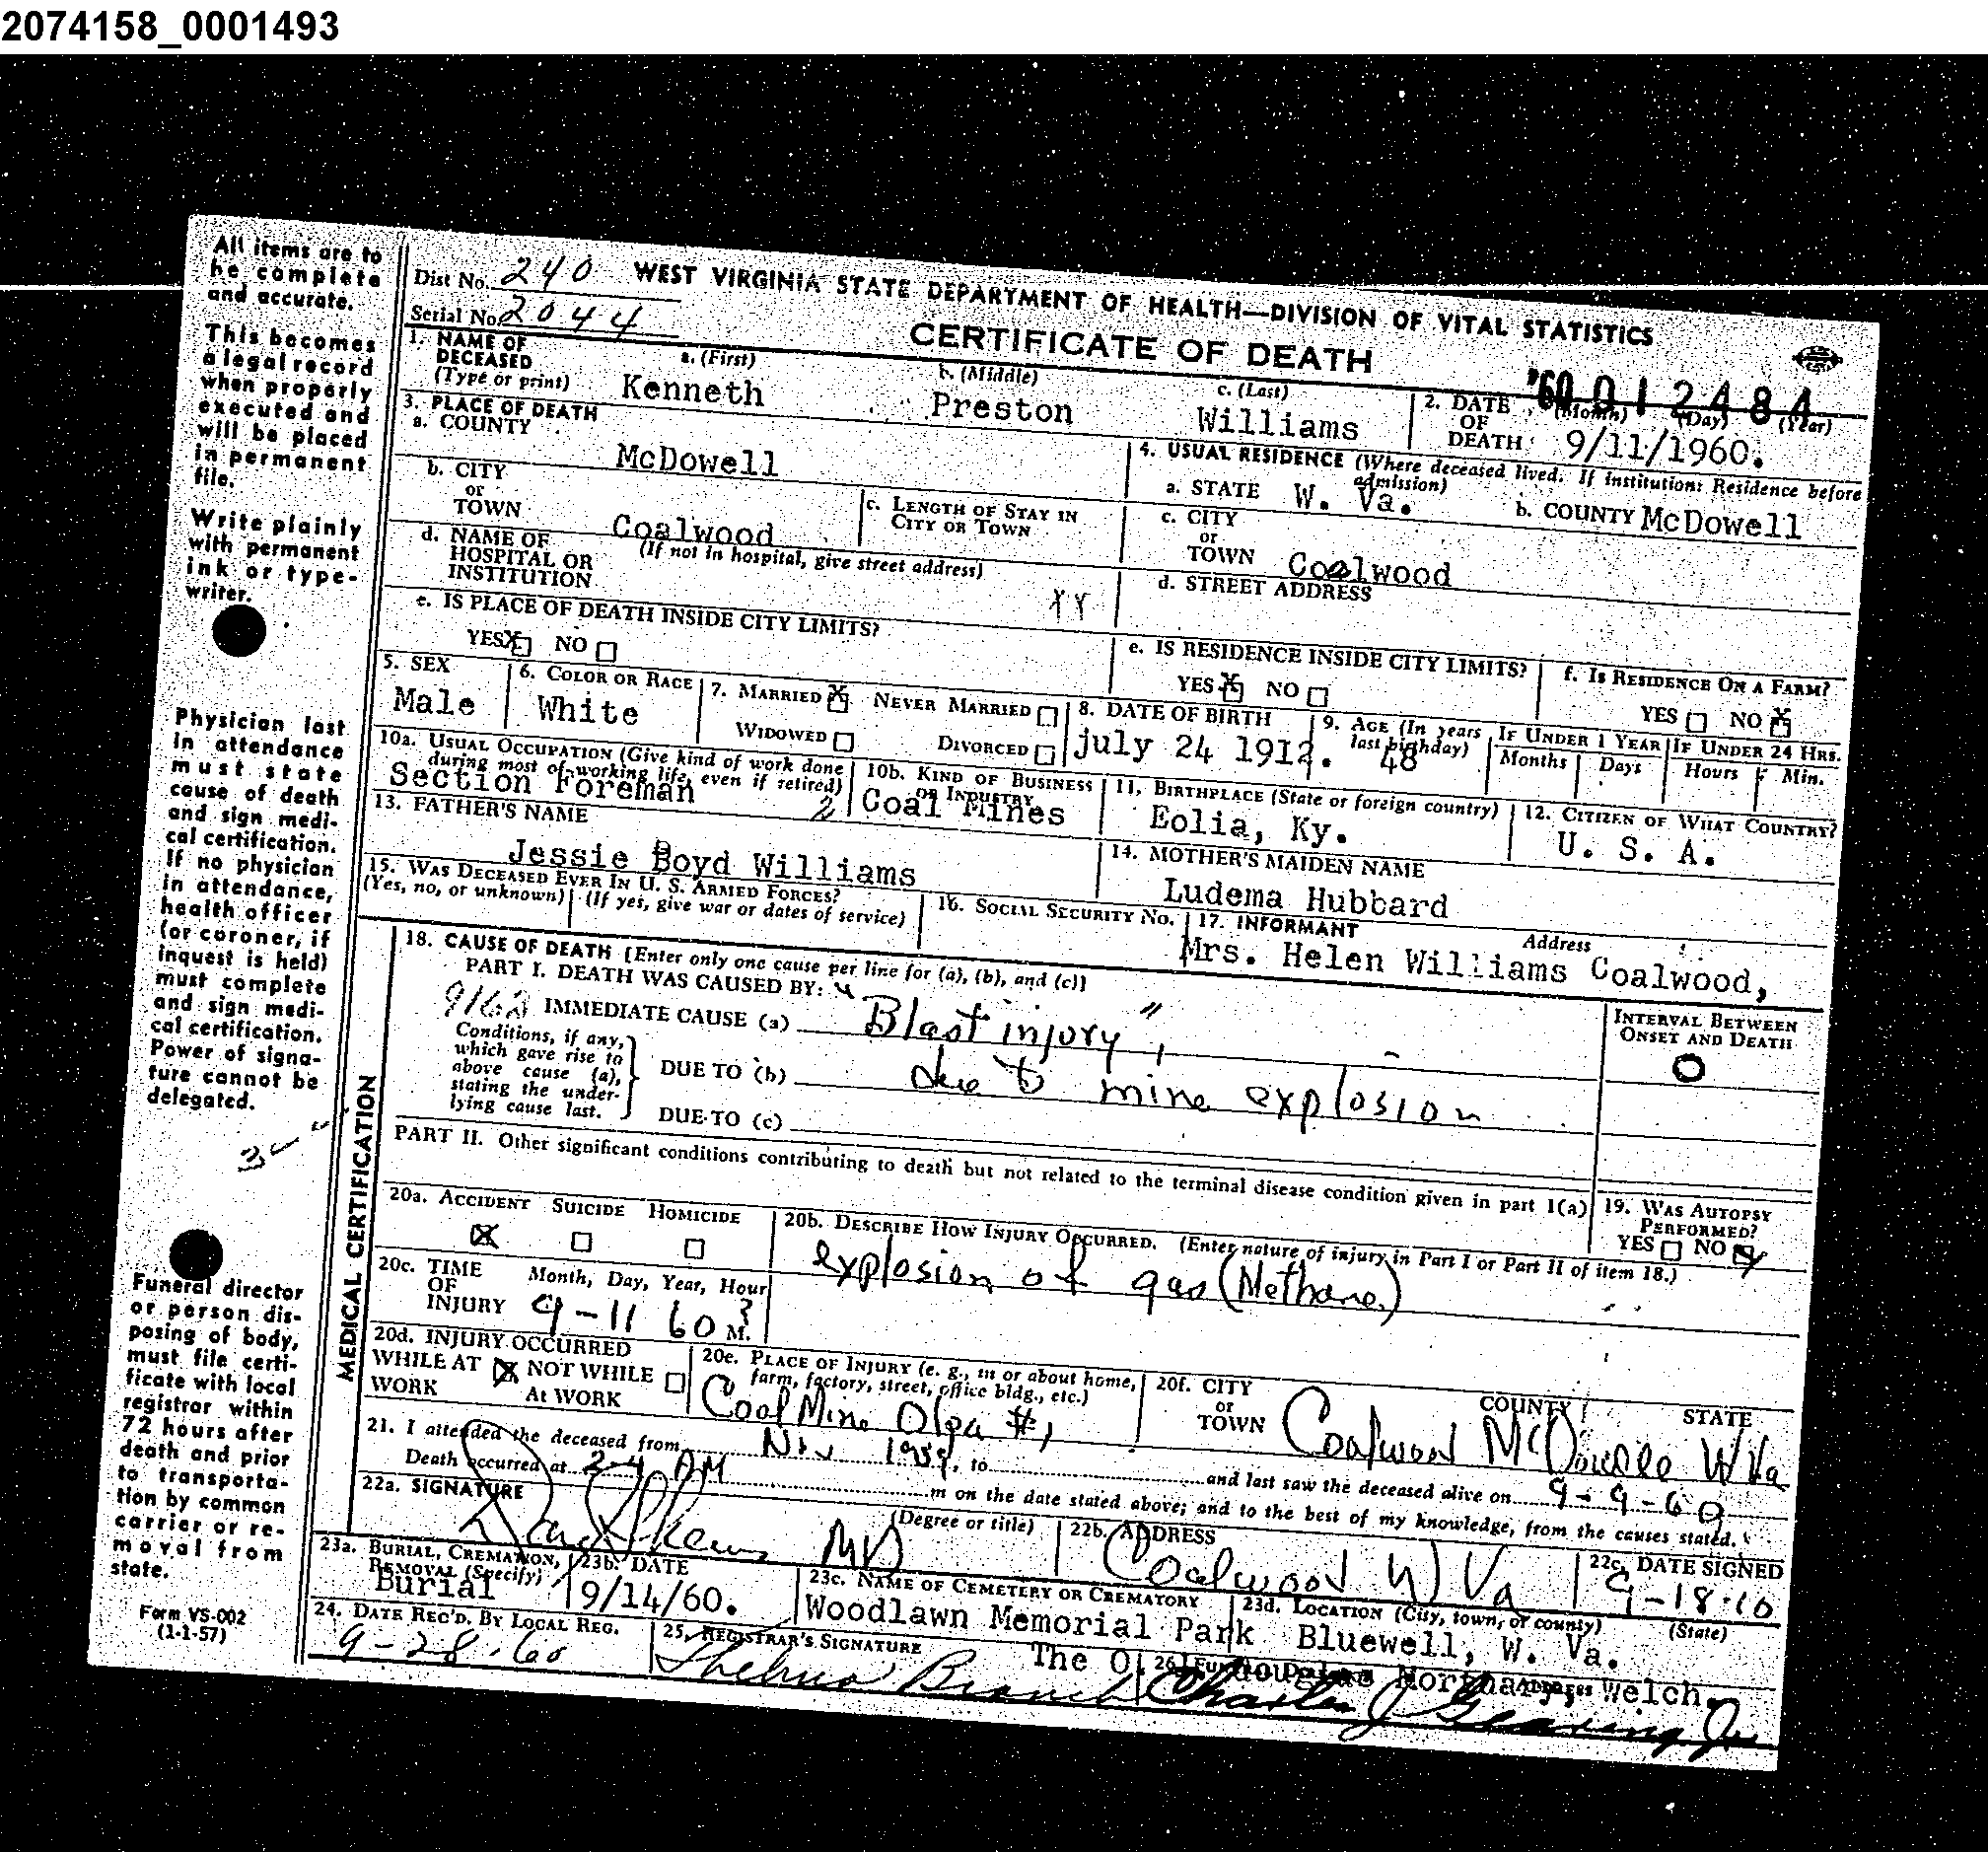 2074158_0001493
All items are to
be complete
and accurate.
This becomes
a legal record
when properly
executed and
will be placed
in permanent
file.
Write plainly
with permanent
ink or type-
writer.
Physician last
in attendance
must state
cause of death
and sign medi-
cal certification.
If no physician
in attendance,
health officer
(or coroner, if
inquest is held)
must complete
and sign medi-
cal certification.
Power of signa-
ture cannot be
delegated.
Funeral director
or person dis-
posing of body,
must file certi-
ficate with local
registrar within
72 hours after
death and prior
to transporta-
tion by common
carrier or re-
moval from
state.
Form VS-002
(1-1-57)
Dist No. 240 WEST VIRGINIA STATE DEPARTMENT OF HEALTH—DIVISION OF VITAL STATISTICS
Serial No. 2044
CERTIFICATE OF DEATH
'60 012484
1. NAME OF DECEASED (Type or print) a. (First) Kenneth b. (Middle) Preston c. (Last) Williams
2. DATE OF DEATH (Month) (Day) (Year) 9/11/1960.
3. PLACE OF DEATH
a. COUNTY McDowell
4. USUAL RESIDENCE (Where deceased lived. If institution: Residence before admission)
a. STATE W. Va. b. COUNTY McDowell
b. CITY or TOWN Coalwood
c. LENGTH OF STAY IN CITY OR TOWN
c. CITY or TOWN Coalwood
d. NAME OF HOSPITAL OR INSTITUTION (If not in hospital, give street address)
d. STREET ADDRESS
e. IS PLACE OF DEATH INSIDE CITY LIMITS?
YES X NO
e. IS RESIDENCE INSIDE CITY LIMITS?
YES X NO
f. IS RESIDENCE ON A FARM?
YES NO X
5. SEX Male
6. COLOR OR RACE White
7. MARRIED X NEVER MARRIED
WIDOWED DIVORCED
8. DATE OF BIRTH july 24 1912.
9. AGE (In years last birthday) 48
IF UNDER 1 YEAR Months Days
IF UNDER 24 HRS. Hours Min.
10a. USUAL OCCUPATION (Give kind of work done during most of working life, even if retired) Section Foreman
10b. KIND OF BUSINESS OR INDUSTRY Coal Mines
11. BIRTHPLACE (State or foreign country) Eolia, Ky.
12. CITIZEN OF WHAT COUNTRY? U. S. A.
13. FATHER'S NAME Jessie Boyd Williams
14. MOTHER'S MAIDEN NAME Ludema Hubbard
15. WAS DECEASED EVER IN U. S. ARMED FORCES?
(Yes, no, or unknown) (If yes, give war or dates of service)
16. SOCIAL SECURITY No.
17. INFORMANT Address
Mrs. Helen Williams Coalwood,
MEDICAL CERTIFICATION
18. CAUSE OF DEATH [Enter only one cause per line for (a), (b), and (c)]
PART I. DEATH WAS CAUSED BY:
IMMEDIATE CAUSE (a) "Blast injury",
INTERVAL BETWEEN ONSET AND DEATH
O
Conditions, if any, which gave rise to above cause (a), stating the underlying cause last.
DUE TO (b) due to mine explosion
DUE TO (c)
PART II. Other significant conditions contributing to death but not related to the terminal disease condition given in part I(a)
19. WAS AUTOPSY PERFORMED?
YES NO X
20a. ACCIDENT SUICIDE HOMICIDE
X
20b. DESCRIBE HOW INJURY OCCURRED. (Enter nature of injury in Part I or Part II of item 18.)
explosion of gas (Methane)
20c. TIME OF INJURY Month, Day, Year, Hour
9-11 60 ? M.
20d. INJURY OCCURRED
WHILE AT WORK X NOT WHILE AT WORK
20e. PLACE OF INJURY (e. g., in or about home, farm, factory, street, office bldg., etc.)
Coal Mine Olga #1
20f. CITY or TOWN COUNTY STATE
Coalwood McDowell W Va
21. I attended the deceased from Nov 1959, to and last saw the deceased alive on 9-9-60
Death occurred at 2-4 AM m on the date stated above; and to the best of my knowledge, from the causes stated.
22a. SIGNATURE (Degree or title)
MD
22b. ADDRESS
Coalwood W Va
22c. DATE SIGNED
23a. BURIAL, CREMATION, REMOVAL (Specify) Burial
23b. DATE 9/14/60.
23c. NAME OF CEMETERY OR CREMATORY
Woodlawn Memorial Park
23d. LOCATION (City, town, or county) (State)
Bluewell, W. Va.
24. DATE REC'D. BY LOCAL REG.
9-28-60
25. REGISTRAR'S SIGNATURE
Thelma Branch
The Douglas Mortuary, Welch.
Charles J Gearing Jr